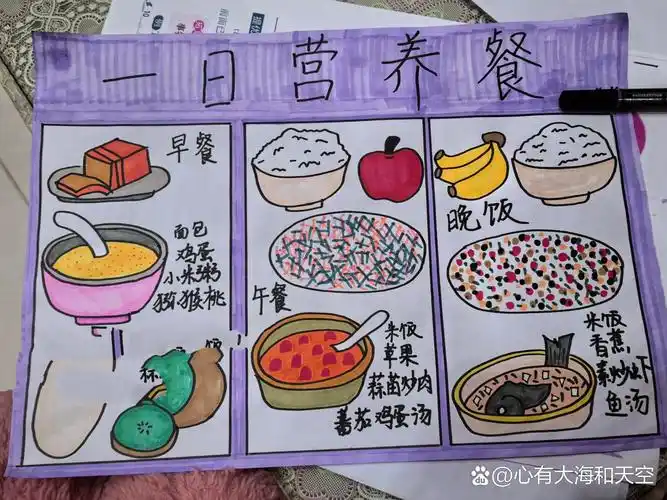 一日营养餐
早餐
面包
鸡蛋
小米粥
猕猴桃
午餐
米饭
苹果
蒜苗炒肉
番茄鸡蛋汤
晚饭
米饭
香蕉
素炒虾
鱼汤
@心有大海和天空